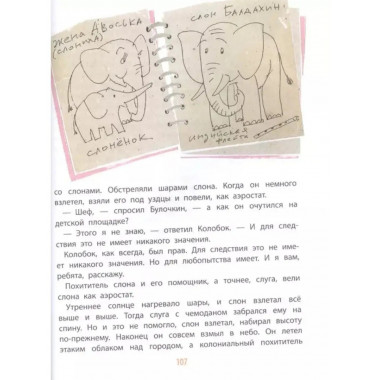 жена Авоська
(слониха)
слонёнок
слон Балдахин:
индийская
флейта
со слонами. Обстреляли шарами слона. Когда он немного
взлетел, взяли его под уздцы и повели, как аэростат.
— Шеф, — спросил Булочкин, — а как он очутился на
детской площадке?
— Этого я не знаю, — ответил Колобок. — И для след-
ствия это не имеет никакого значения.
Колобок, как всегда, был прав. Для следствия это не име-
ет никакого значения. Но для любопытства имеет. И я вам,
ребята, расскажу.
Похититель слона и его помощник, а точнее, слуга, вели
слона как аэростат.
Утреннее солнце нагревало шары, и слон взлетал всё
выше и выше. Тогда слуга с чемоданом забрался ему на
спину. Но и это не помогло, слон взлетал, набирал высоту
по-прежнему. Наконец он совсем взмыл в небо. Он летел
этаким облаком над городом, а колониальный похититель
107